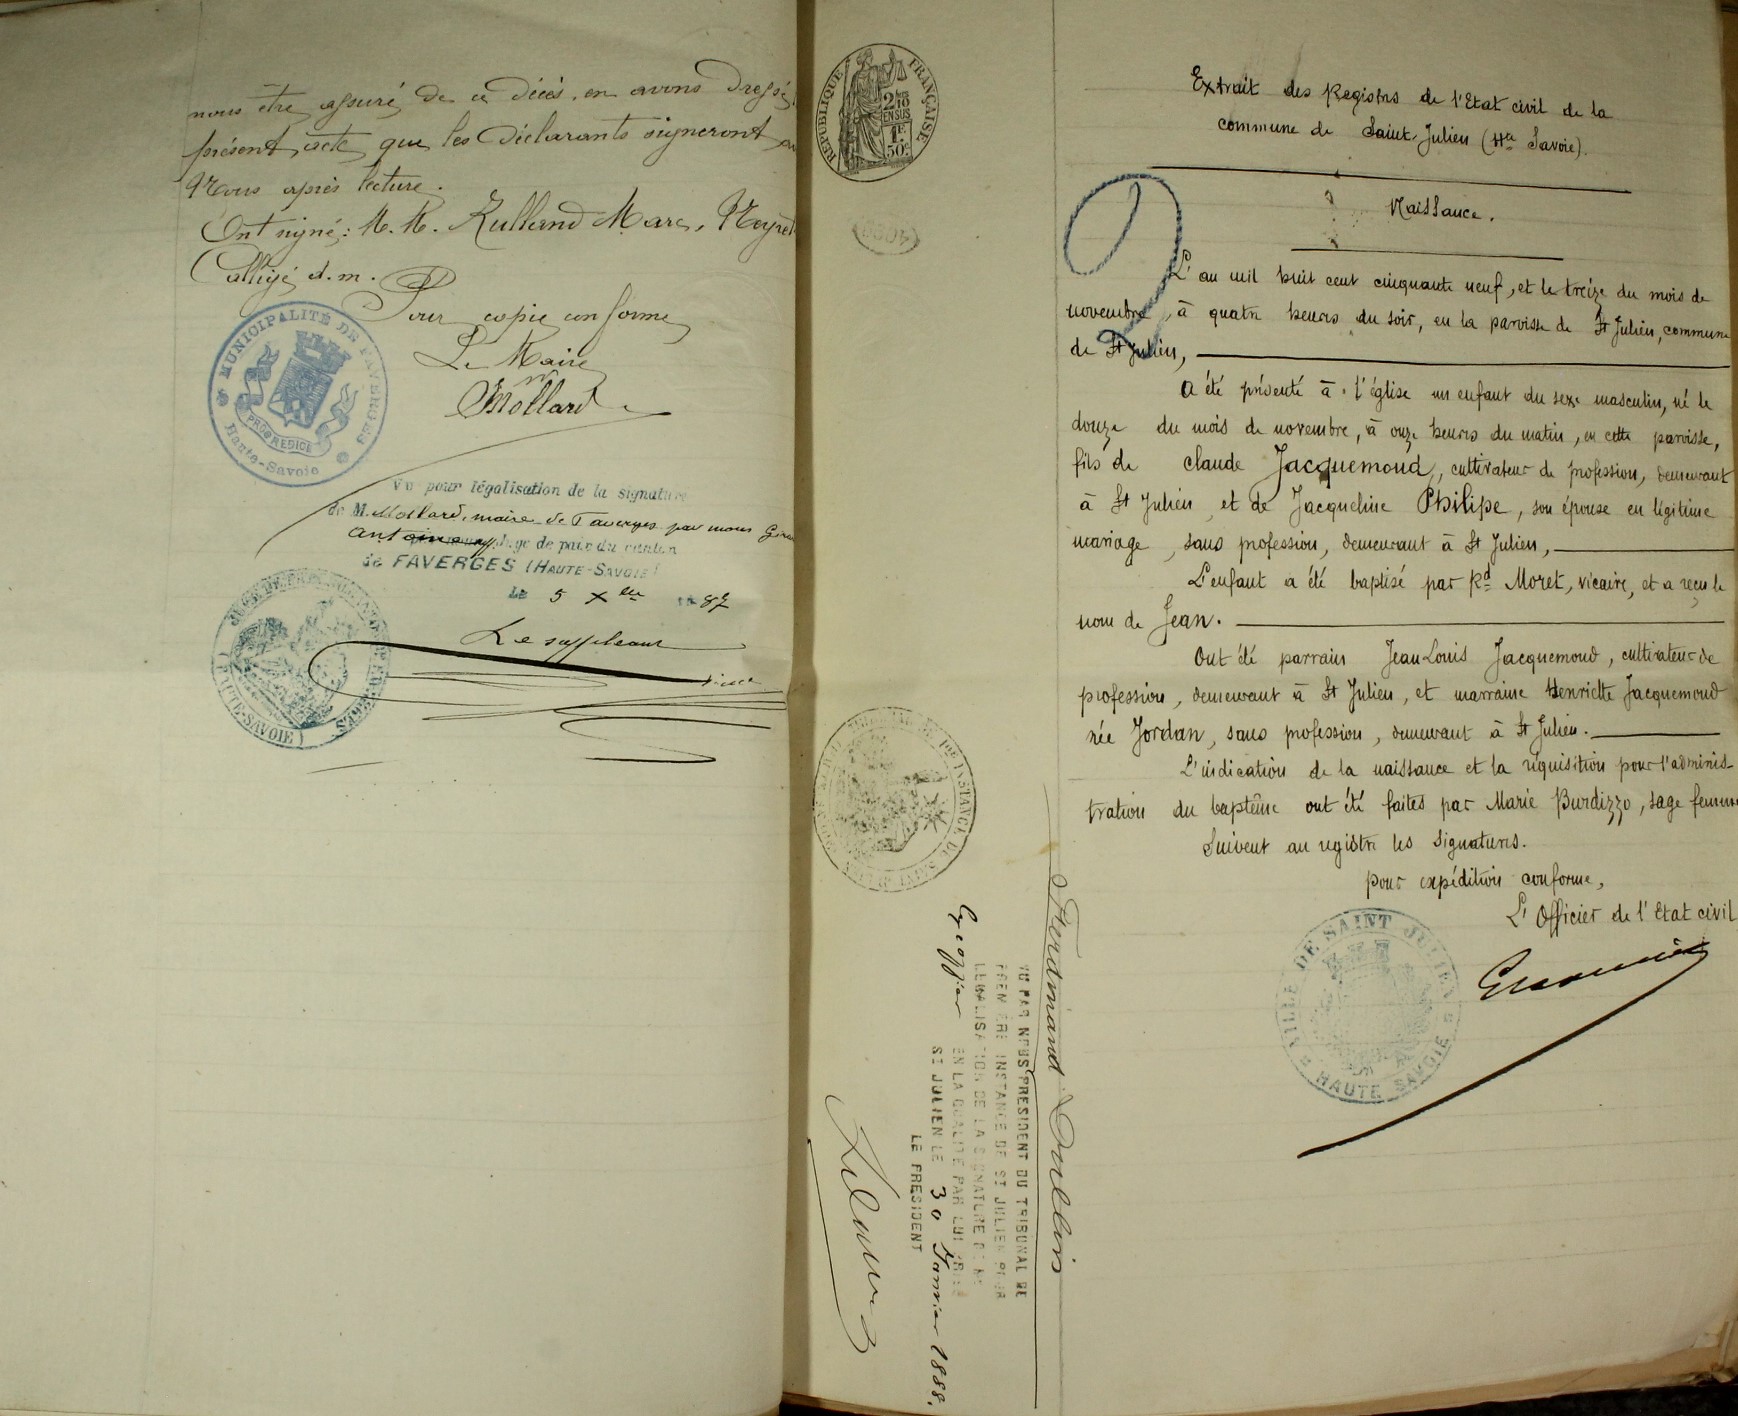 nous être assuré de ce décès, en avons dressé
présent acte que les déclarants signeront
Nous après lecture.
Ont signé: M. M. Rulland Marc,
d. m.
Pour copie conforme
Le Maire
Mollard
MUNICIPALITÉ DE FAVERGES
PROGREDIOR
Haute-Savoie
Vu pour légalisation de la signature
de M. Mollard, maire de Faverges par nous
Antoine juge de paix du canton
de FAVERGES (HAUTE-SAVOIE)
Le 5 Xbre 1887
Le suppléant
(HAUTE-SAVOIE)
RÉPUBLIQUE FRANÇAISE
2/10
EN SUS
1F
50c
Extrait des Registres de l'Etat civil de la
commune de Saint Julien (Hte Savoie).
Naissance.
L'an mil huit cent cinquante neuf, et le treize du mois de
novembre, à quatre heures du soir, en la paroisse de St Julien, commune
de St Julien,
A été présenté à l'église un enfant du sexe masculin, né le
douze du mois de novembre, à onze heures du matin, en cette paroisse,
fils de Claude Jacquemoud, cultivateur de profession, demeurant
à St Julien, et de Jacqueline Philipe, son épouse en légitime
mariage, sans profession, demeurant à St Julien,
L'enfant a été baptisé par Rd Moret, vicaire, et a reçu le
nom de Jean.
Ont été parrain Jean Louis Jacquemoud, cultivateur de
profession, demeurant à St Julien, et marraine Henriette Jacquemoud
née Jordan, sans profession, demeurant à St Julien.
L'indication de la naissance et la réquisition pour l'adminis-
tration du baptême ont été faites par Marie Burdizzo, sage femme
Suivent au registre les signatures.
pour expédition conforme,
L'Officier de l'Etat civil
VILLE DE SAINT JULIEN
HAUTE SAVOIE
Ferdinand
VU PAR NOUS PRESIDENT DU TRIBUNAL DE
PREMIERE INSTANCE DE ST JULIEN POUR
LEGALISATION DE LA SIGNATURE DE Mr
EN LA QUALITE PAR LUI PRISE
ST JULIEN LE 30 Janvier 1888.
LE PRESIDENT